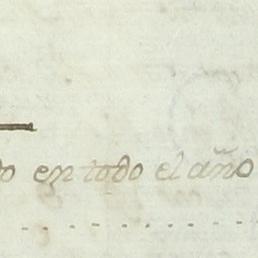 do en todo el año